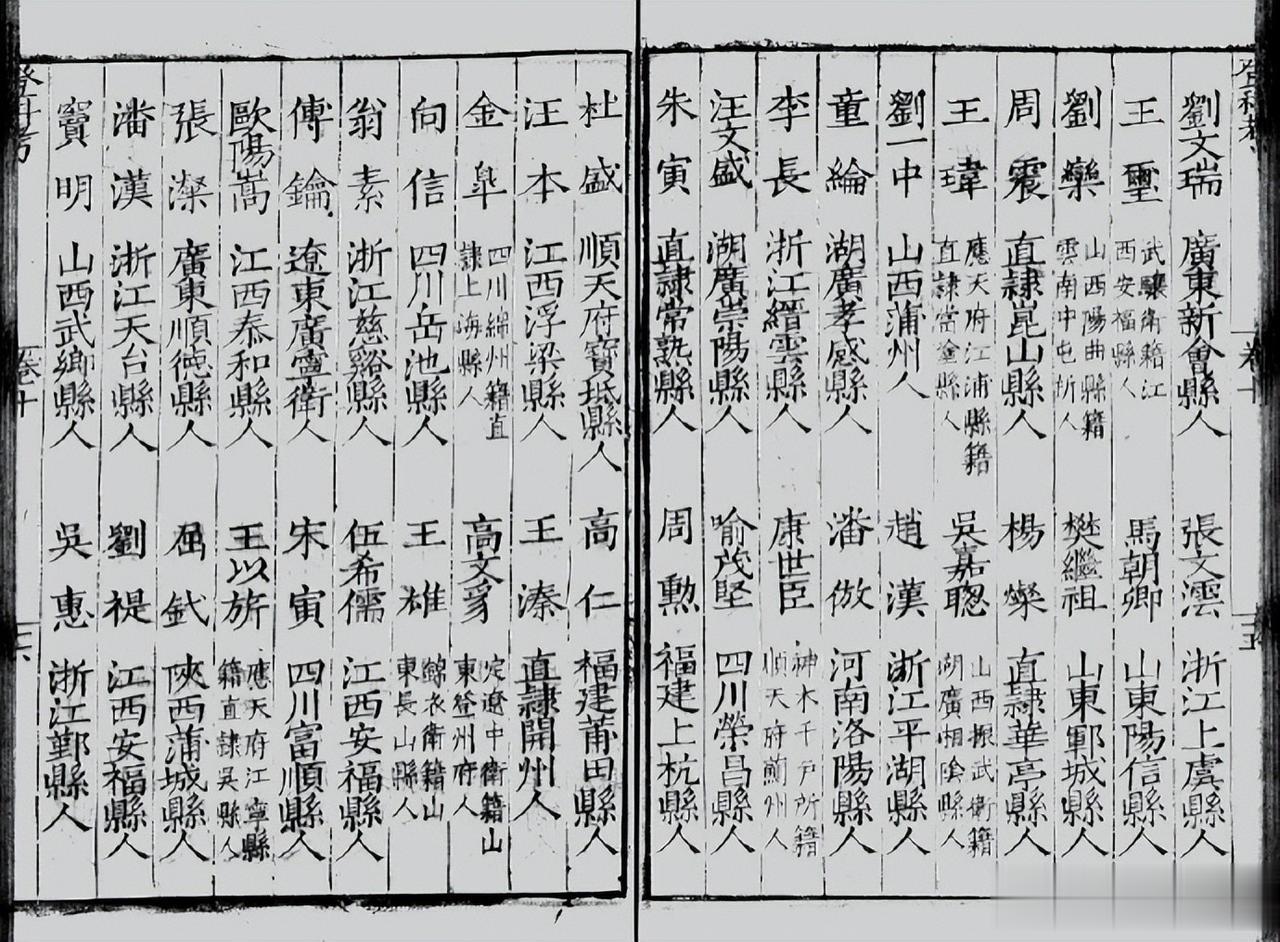 登科考
卷十
十五
劉文瑞 廣東新會縣人 張文澐 浙江上虞縣人
王璽 武驤衛籍江西安福縣人 馬朝卿 山東陽信縣人
劉欒 山西陽曲縣籍雲南中屯所人 樊繼祖 山東鄆城縣人
周震 直隷崑山縣人 楊爍 直隷華亭縣人
王瑋 應天府江浦縣籍直隷當塗縣人 吳嘉聦 山西振武衛籍湖廣湘陰縣人
劉一中 山西蒲州人 趙漢 浙江平湖縣人
童綸 湖廣孝感縣人 潘倣 河南洛陽縣人
李長 浙江縉雲縣人 康世臣 神木千戶所籍順天府薊州人
汪文盛 湖廣崇陽縣人 喻茂堅 四川榮昌縣人
朱寅 直隷常熟縣人 周勲 福建上杭縣人
杜盛 順天府寶坻縣人 高仁 福建莆田縣人
汪本 江西浮梁縣人 王溱 直隷開州人
金皐 四川綿州籍直隷上海縣人 高文豸 定遼中衛籍山東登州府人
向信 四川岳池縣人 王雄 錦衣衛籍山東長山縣人
翁素 浙江慈谿縣人 伍希儒 江西安福縣人
傅鑰 遼東廣寧衛人 宋寅 四川富順縣人
歐陽嵩 江西泰和縣人 王以旂 應天府江寧縣籍直隷吳縣人
張澯 廣東順德縣人 屈銊 陝西蒲城縣人
潘漢 浙江天台縣人 劉禔 江西安福縣人
竇明 山西武鄉縣人 吳惠 浙江鄞縣人
登科考
卷十
十六